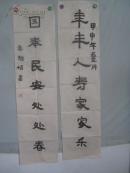 年丰人寿家家乐
甲申年
国泰民安处处春